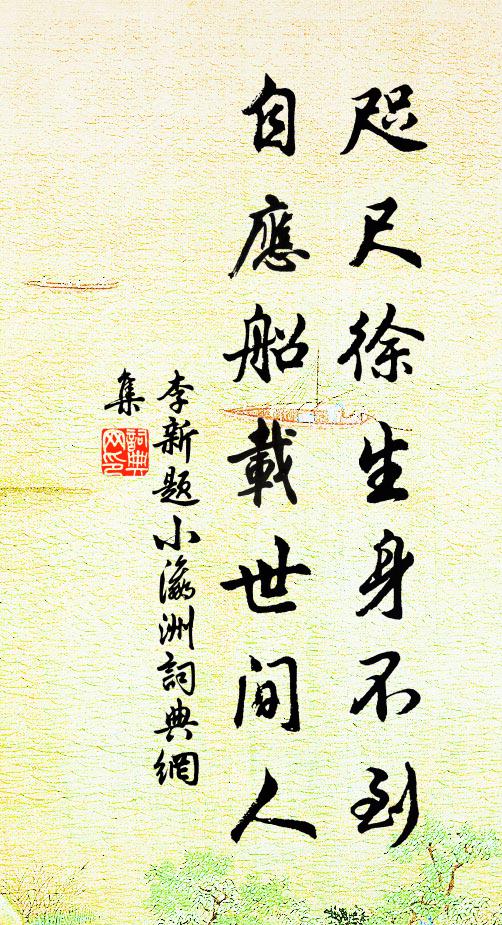 咫尺徐生身不到
自應船載世間人
李新題小瀛洲詞典網
集
詞典